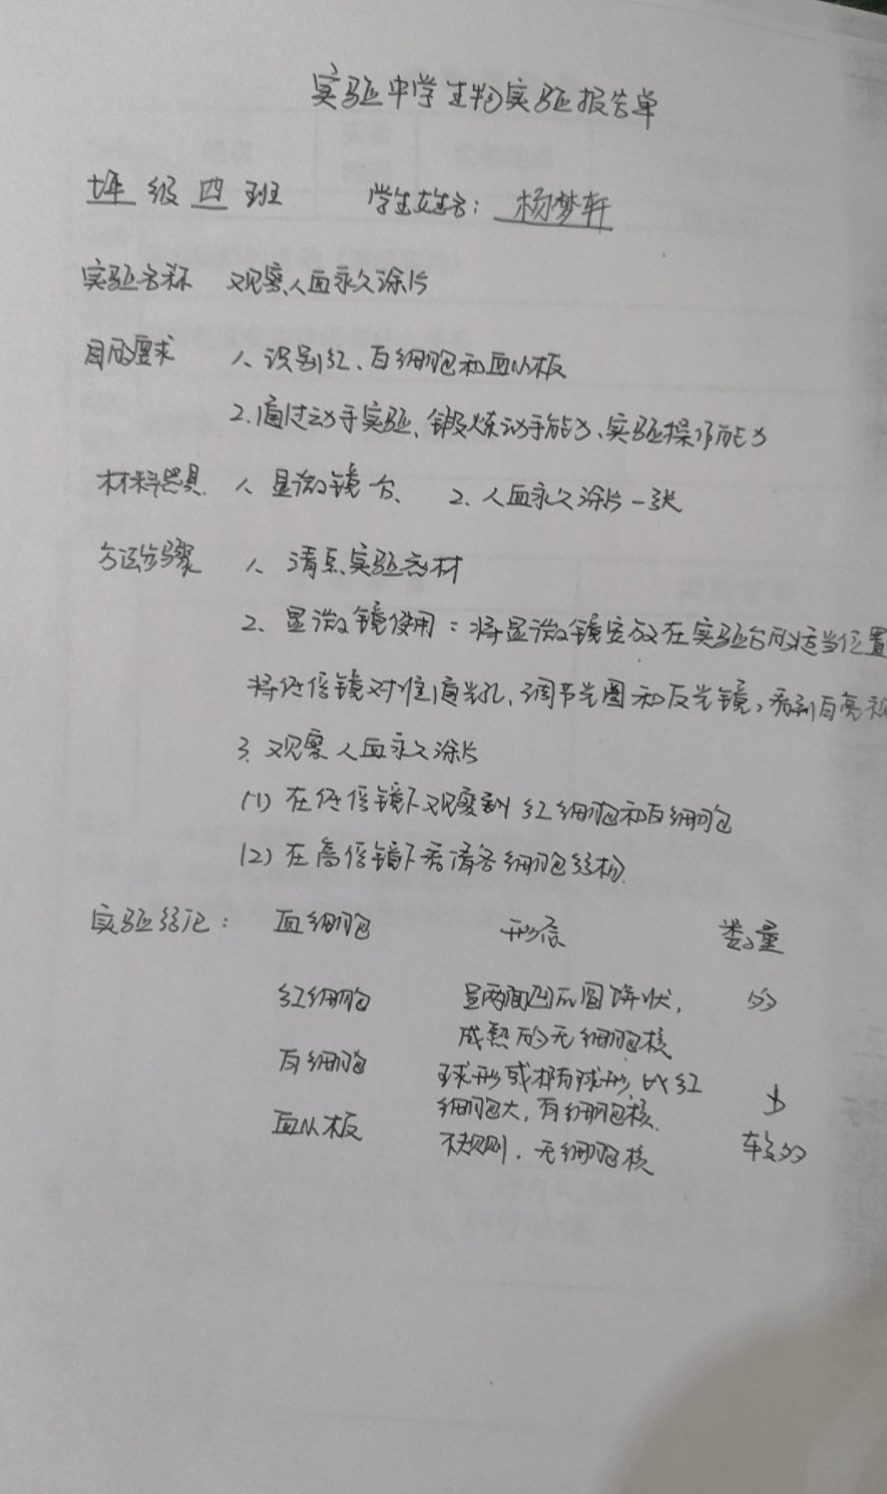 实验中学生物实验报告单
七年 级 四 班 学生姓名: 杨梦轩
实验名称 观察人血永久涂片
目的要求 1、识别红、白细胞和血小板
2.通过动手实验、锻炼动手能力、实验操作能力
材料器具 1、显微镜一台、 2、人血永久涂片一张
方法步骤 1、清点实验器材
2、显微镜使用:将显微镜安放在实验台的适当位置
将低倍镜对准通光孔,调节光圈和反光镜,看到白亮视
3.观察人血永久涂片
(1)在低倍镜下观察到红细胞和白细胞
(2)在高倍镜下看清各细胞结构.
实验结论: 血细胞 形态 数量
红细胞 呈两面凹的圆饼状, 多
成熟的无细胞核
白细胞 球形或椭球形,比红
细胞大,有细胞核. 少
血小板 不规则.无细胞核 较多